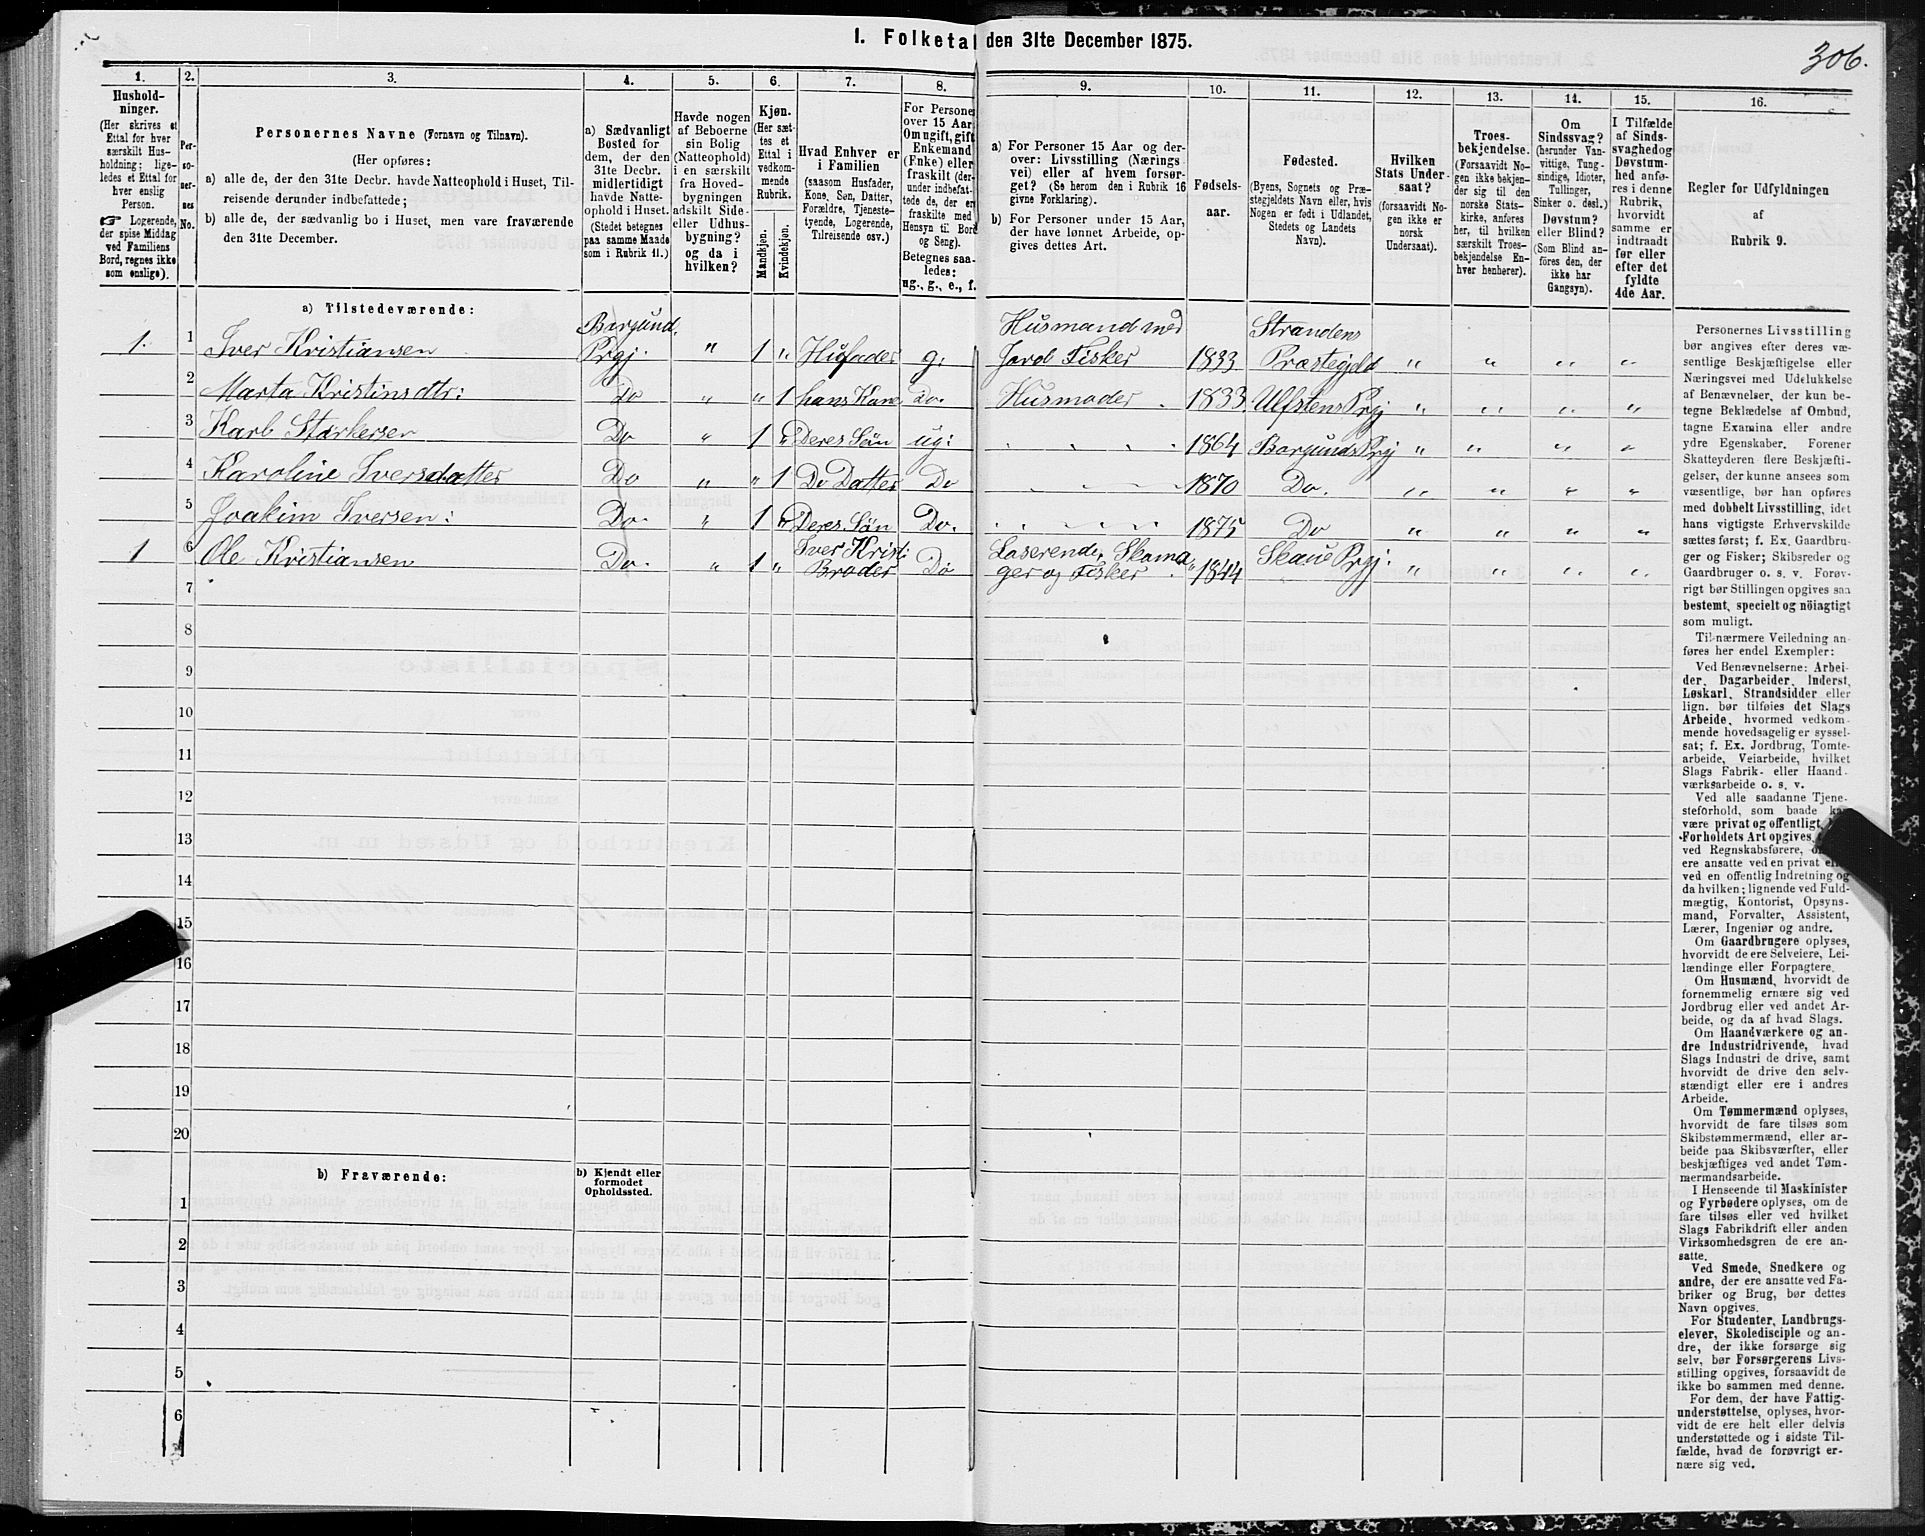 I. Folketal den 31te December 1875.
306.
1.
2.
3.
4.
5.
6.
7.
8.
9.
10.
11.
12.
13.
14.
15.
16.
Hushold-
ninger.
(Her skrives et
Ettal for hver
særskilt Hus-
holdning; lige-
ledes et Ettal for
hver enslig
Person.
☞ Logerende,
der spise Middag
ved Familiens
Bord, regnes ikke
som enslige).
Per-
so-
ner-
nes
No.
Personernes Navne (Fornavn og Tilnavn).
(Her opføres:
a) alle de, der den 31te Decbr. havde Natteophold i Huset, Til-
reisende derunder indbefattede;
b) alle de, der sædvanlig bo i Huset, men vare fraværende
den 31te December.
a) Sædvanligt
Bosted for
dem, der den
31te Decbr.
midlertidigt
havde Natte-
ophold i Huset.
(Stedet betegnes
paa samme Maade
som i Rubrik 11.)
Havde nogen
af Beboerne
sin Bolig
(Natteophold)
i en særskilt
fra Hoved-
bygningen
adskilt Side-
eller Udhus-
bygning?
og da i
hvilken?
Kjøn.
(Her sæt-
tes et
Ettal i
vedkom-
mende
Rubrik.
Mandkjøn.
Kvindekjøn.
Hvad Enhver er
i Familien
(saasom Husfader,
Kone, Søn, Datter,
Forældre, Tjeneste-
tyende, Logerende,
Tilreisende osv.)
For Personer
over 15 Aar:
Om ugift, gift,
Enkemand
(Enke) eller
fraskilt (der-
under indbefat-
tede de, der ere
fraskilte med
Hensyn til Bord
og Seng).
Betegnes saa-
ledes:
ug., g., e., f.
a) For Personer 15 Aar og der-
over: Livsstilling (Nærings-
vei) eller af hvem forsør-
get? (Se herom den i Rubrik 16
givne Forklaring).
b) For Personer under 15 Aar,
der have lønnet Arbeide, op-
gives dettes Art.
Fødsels-
aar.
Fødested.
(Byens, Sognets og Præ-
stegjeldets Navn eller, hvis
Nogen er født i Udlandet,
Stedets og Landets
Navn).
Hvilken
Stats Under-
saat?
(forsaavidt No-
gen ikke er
norsk
Undersaat).
Troes-
bekjendelse.
(Forsaavidt No-
gen ikke bekjen-
der sig til den
norske Stats-
kirke, anføres
her, til hvilken
særskilt Troes-
bekjendelse En-
hver henhører).
Om
Sindssvag?
(herunder Van-
vittige, Tung-
sindige, Idioter,
Tullinger,
Sinker o. desl.)
Døvstum?
eller Blind?
(Som Blind an-
føres den, der
ikke har
Gangsyn).
I Tilfælde
af Sinds-
svaghed og
Døvstum-
hed anfø-
res i denne
Rubrik,
hvorvidt
samme er
indtraadt
før eller
efter det
fyldte
4de Aar.
Regler for Udfyldningen
af
Rubrik 9.
a) Tilstedeværende:
1. 1 Iver Kristiansen Borgund Prgj. " 1 " Husfader g. Husmand med Jord Fisker 1833 Strandens Præstegjeld " " " "
2 Marta Kristinsdtr: Do " " 1 hans Kone Do. Husmoder 1833 Ulfstens Prgj " " " "
3 Karl Starkersen Do " 1 " Deres Søn ug: " " " " 1864 Borgunds Prgj " " " "
4 Karoline Iversdatter Do " " 1 Do Datter Do " " " " 1870 Do. " " " "
5 Joakim Iversen: Do. " 1 " Deres Søn Do. " " " " 1875 Do " " " "
1 6 Ole Kristiansen Do. " 1 " Iver Kristi: Broder Do Loserende, Skoma ger og Fisker 1844 Skaue Prgj. " " " "
7
8
9
10
11
12
13
14
15
16
17
18
19
20
b) Fraværende:
b) Kjendt eller
formodet
Opholdssted.
1
2
3
4
5
6
Personernes Livsstilling
bør angives efter deres væ-
sentlige Beskjæftigelse eller
Næringsvei med Udelukkelse
af Benævnelser, der kun be-
tegne Beklædelse af Ombud,
tagne Examina eller andre
ydre Egenskaber. Forener
Skatteyderen flere Beskjæfti-
gelser, der kunne ansees som
væsentlige, bør han opføres
med dobbelt Livsstilling, idet
hans vigtigste Erhvervskilde
sættes først; f. Ex. Gaardbru-
ger og Fisker; Skibsreder og
Gaardbruger o. s. v. Forøv-
rigt bør Stillingen opgives saa
bestemt, specielt og nöiagtigt
som muligt.
Til nærmere Veiledning an-
føres her endel Exempler:
Ved Benævnelserne: Arbei-
der, Dagarbeider, Inderst,
Løskarl, Strandsidder eller
lign. bør tilføies det Slags
Arbeide, hvormed vedkom-
mende hovedsagelig er syssel-
sat; f. Ex. Jordbrug, Tomte-
arbeide, Veiarbeide, hvilket
Slags Fabrik- eller Haand-
værksarbeide o. s. v.
Ved alle saadanne Tjene-
steforhold, som baade kan
være privat og offentligt,
Forholdets Art opgives
ved Regnskabsførere,
ere ansatte ved en privat eller
ved en offentlig Indretning og
da hvilken; lignende ved Fuld-
mægtig, Kontorist, Opsyns-
mand, Forvalter, Assistent,
Lærer, Ingeniør og andre.
Om Gaardbrugere oplyses,
hvorvidt de ere Selveiere, Lei-
lændinge eller Forpagtere.
Om Husmænd, hvorvidt de
fornemmelig ernære sig ved
Jordbrug eller ved andet Ar-
beide, og da af hvad Slags.
Om Haandværkere og an-
dre Industridrivende, hvad
Slags Industri de drive, samt
hvorvidt de drive den selv-
stændigt eller ere i andres
Arbeide.
Om Tømmermænd oplyses,
hvorvidt de fare tilsøs som
Skibstømmermænd, eller ar-
beide paa Skibsværfter, eller
beskjæftiges ved andet Tøm-
mermandsarbeide.
I Henseende til Maskinister
og Fyrbødere oplyses, om de
fare tilsøs eller ved hvilket
Slags Fabrikdrift eller anden
Virksomhedsgren de ere an-
satte.
Ved Smede, Snedkere og
andre, der ere ansatte ved Fa-
briker og Brug, bør dettes
Navn opgives.
For Studenter, Landbrugs-
elever, Skoledisciple og an-
dre, der ikke forsørge sig
selv, bør Forsørgerens Livs-
stilling opgives, forsaavidt de
ikke bo sammen med denne.
For dem, der have Fattig-
understøttelse, oplyses, hvor-
vidt de ere helt eller delvis
understøttede og i sidste Til-
fælde, hvad de forøvrigt er-
nære sig ved.